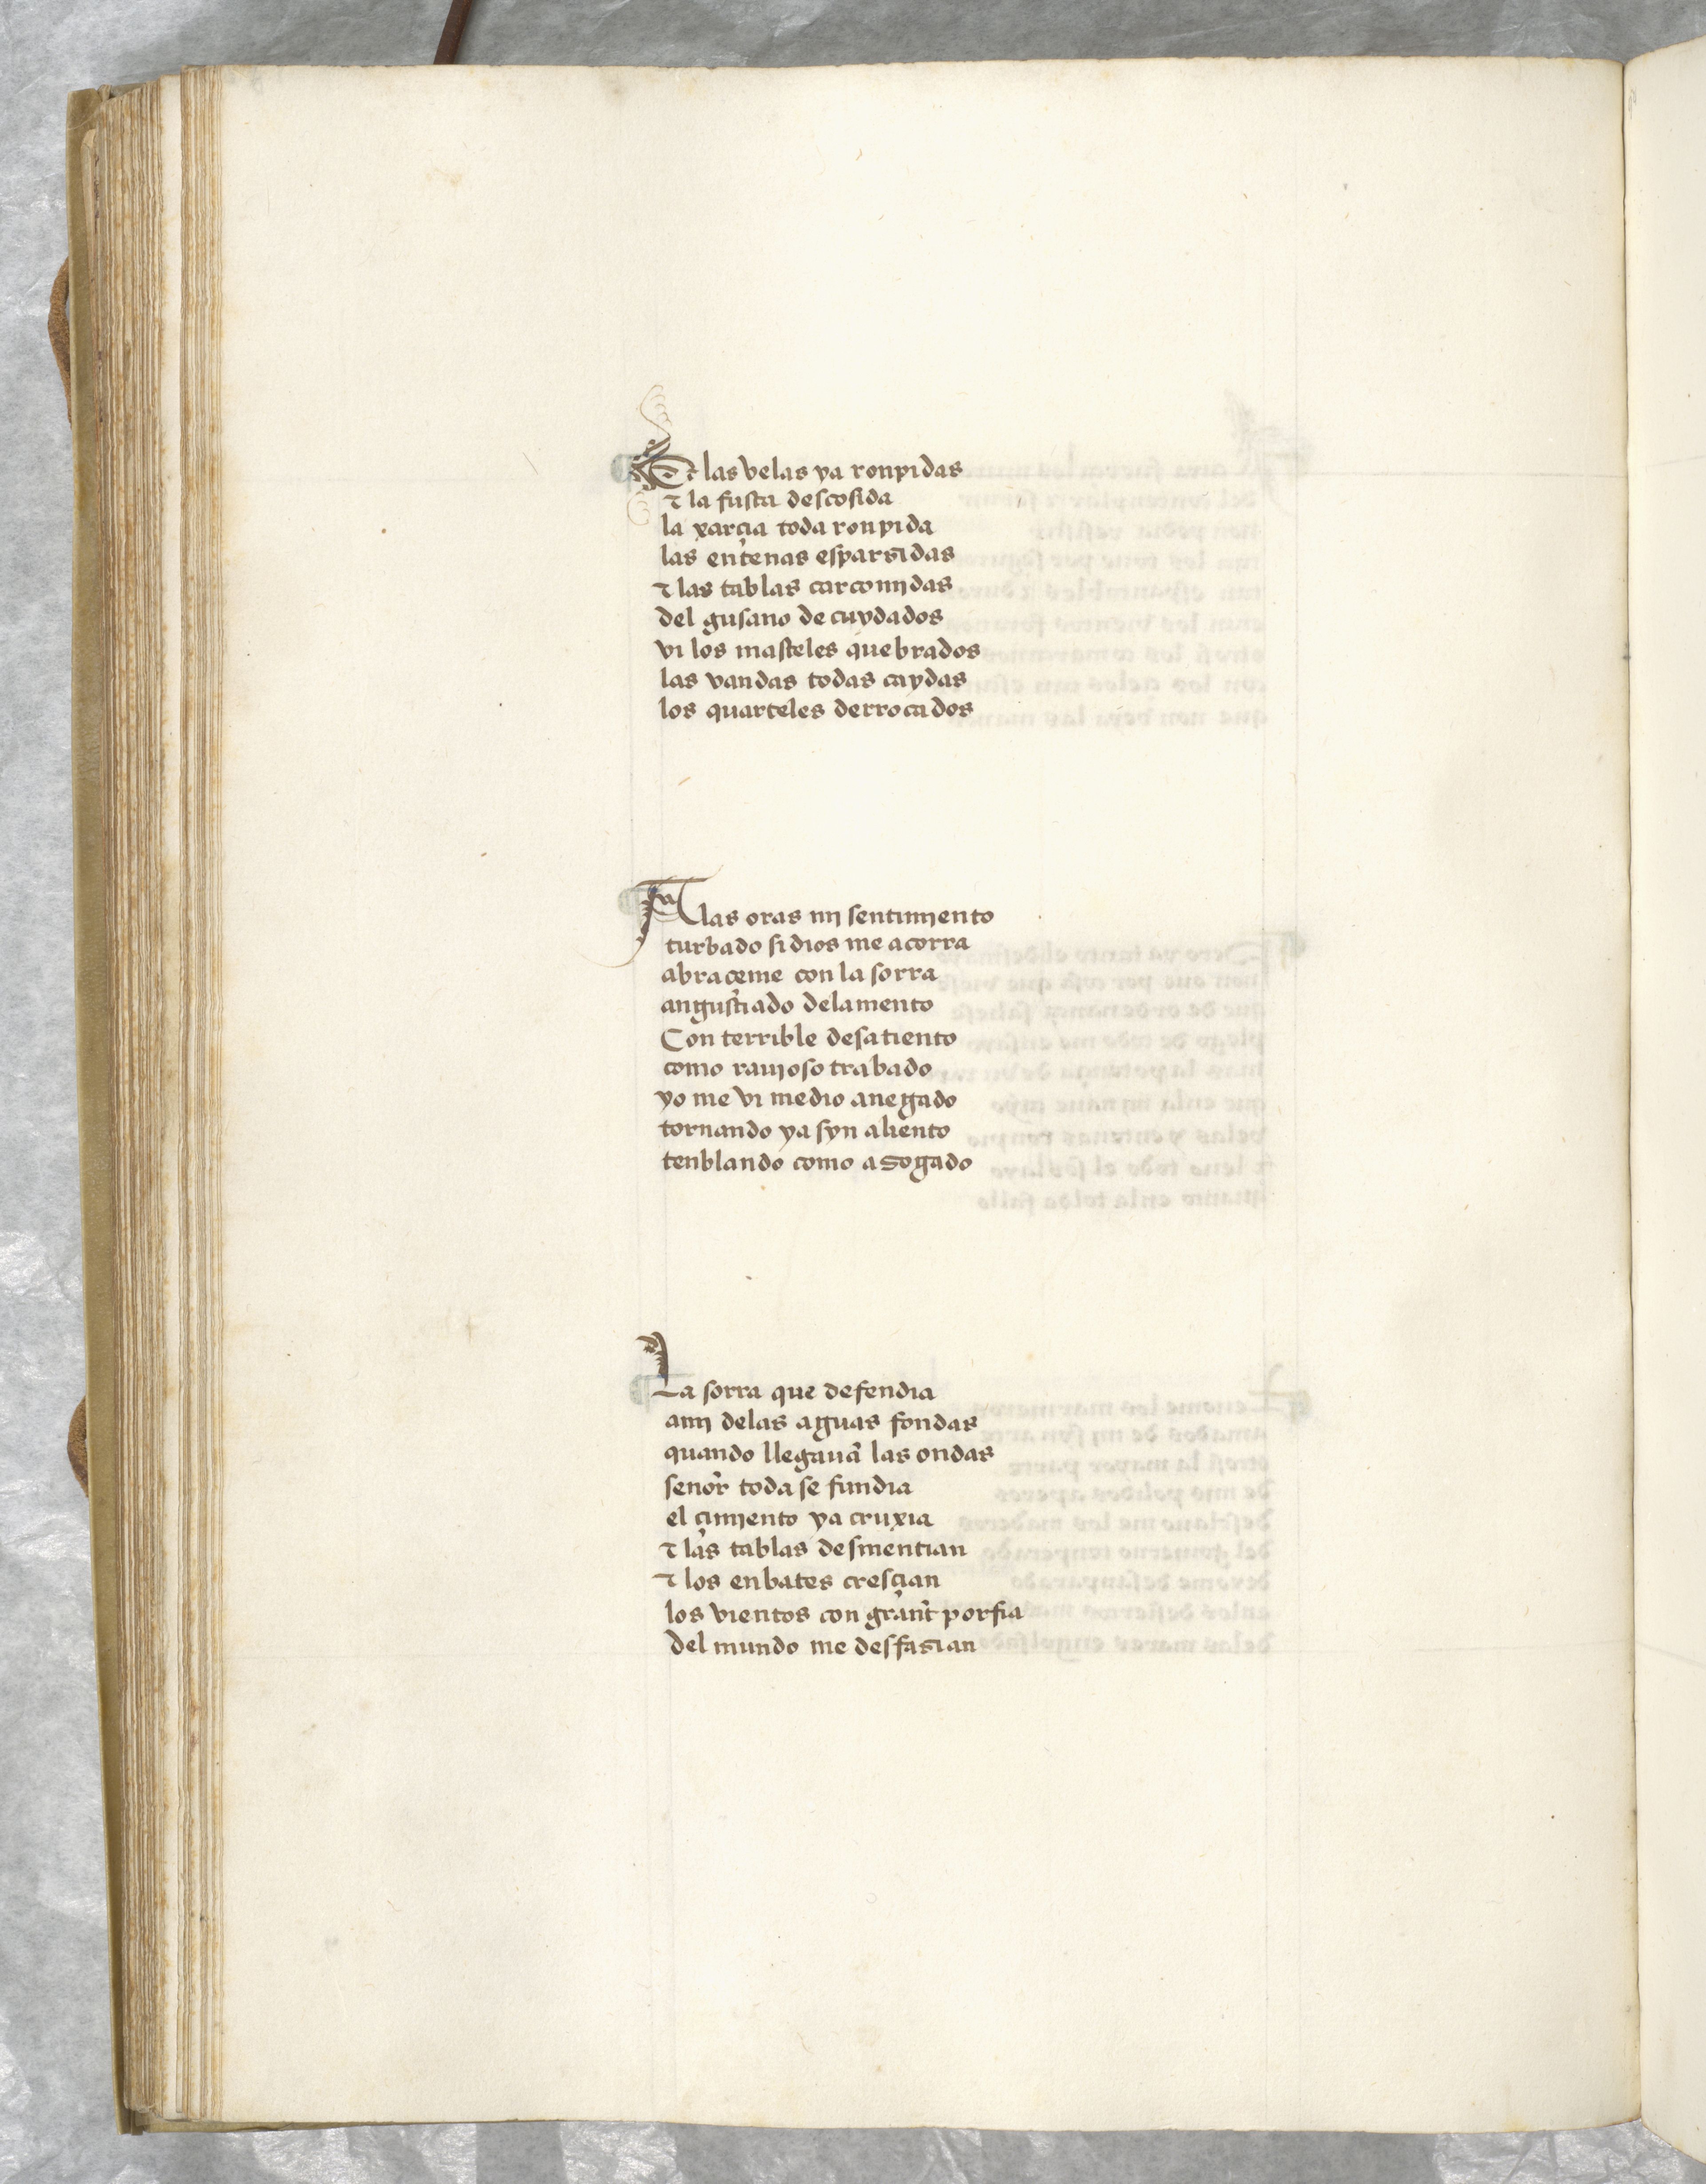 Et las velas ya ronpidas
⁊ la fusta descosida
la xarçia toda ronpida
las entenas esparzidas
⁊ las tablas carcomidas
del gusano de cuydados
vi los masteles quebrados
las vandas todas caydas
los quarteles derrocados
En las oras mi sentimiento
turbado si dios me acorra
abraçeme con la sorra
angustiado delamento
Con terrible desatiento
como rauioso trabado
yo me vi medio anegado
tornando ya syn aliento
tenblando como azogado
La sorra que defendia
ami delas aguas fondas
quando llegauã las ondas
señor toda se fundia
el çimiento ya cruxia
⁊ las tablas desmentian
⁊ los enbates cresçian
los vientos con grant porfia
del mundo me desfazian